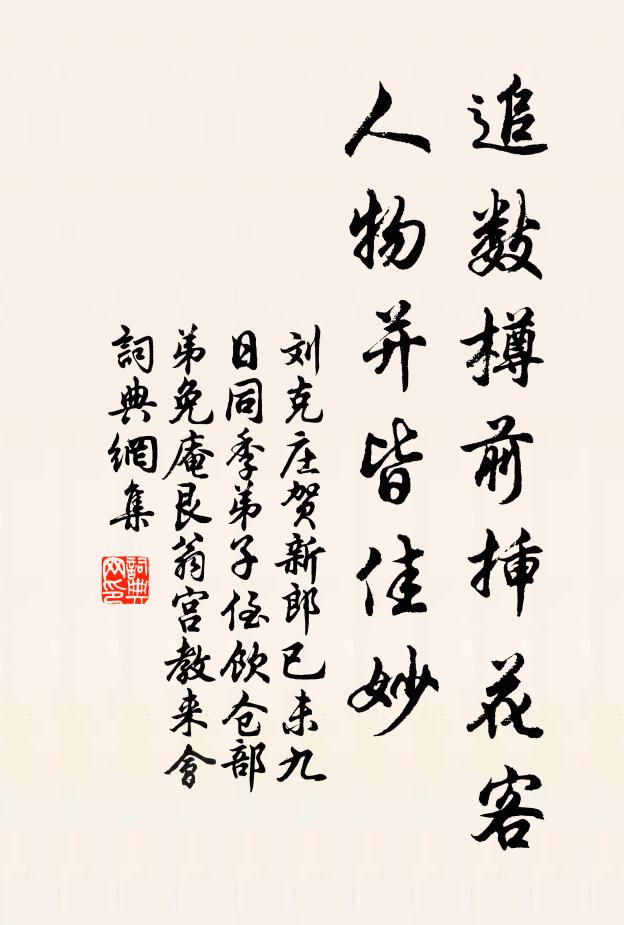 追数樽前挿花客
人物并皆佳妙
刘克庄贺新郎已未九
日同季弟子侄饮仓部
弟免庵艮翁宫教来會
詞典網集
詞典网印